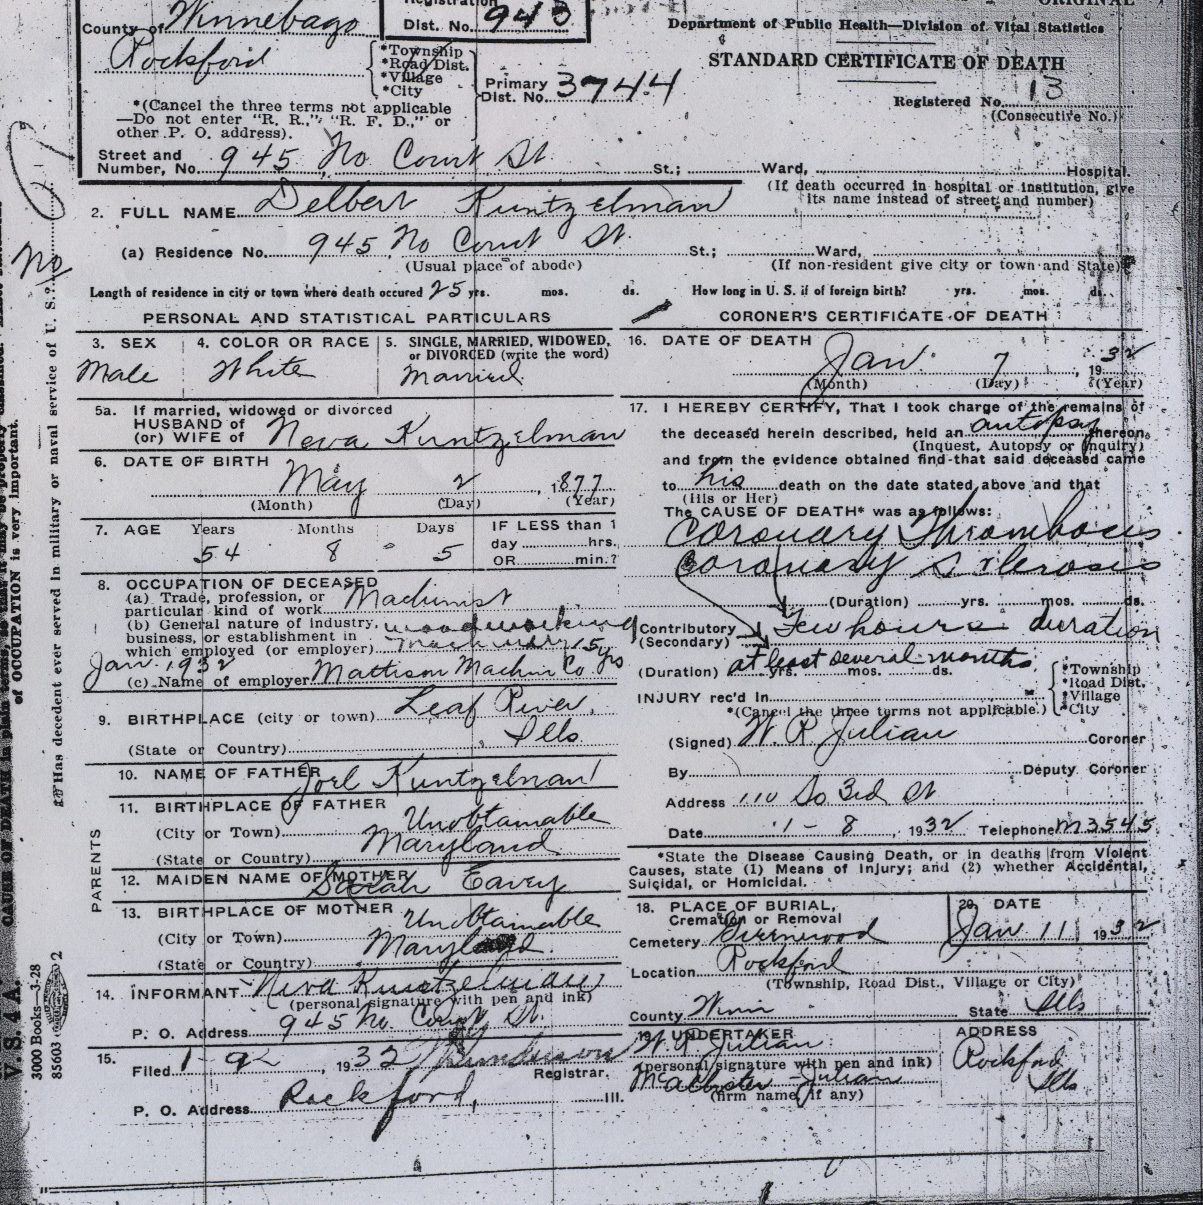 ORIGINAL
Registration
County of Winnebago
Dist. No. 943
Department of Public Health—Division of Vital Statistics
Rockford
*Township
*Road Dist.
*Village
*City
STANDARD CERTIFICATE OF DEATH
Primary
Dist. No. 3744
Registered No. 13
(Consecutive No.)
*(Cancel the three terms not applicable
—Do not enter "R. R.," "R. F. D.," or
other P. O. address).
Street and
Number, No. 945 No Court St St.; Ward, Hospital.
(If death occurred in hospital or institution, give
its name instead of street and number)
2. FULL NAME Delbert Kuntzelman
(a) Residence No. 945 No Court St. St.; Ward,
(Usual place of abode)
(If non-resident give city or town and State)
Length of residence in city or town where death occured 25 yrs. mos. ds. How long in U. S. if of foreign birth? yrs. mos. ds.
PERSONAL AND STATISTICAL PARTICULARS
3. SEX
4. COLOR OR RACE
5. SINGLE, MARRIED, WIDOWED,
or DIVORCED (write the word)
Male White Married
5a. If married, widowed or divorced
HUSBAND of
(or) WIFE of Neva Kuntzelman
6. DATE OF BIRTH
May 2, 1877
(Month) (Day) (Year)
7. AGE Years Months Days IF LESS than 1
day hrs.
54 8 5 OR min.?
8. OCCUPATION OF DECEASED
(a) Trade, profession, or
particular kind of work Machinist
(b) General nature of industry,
business, or establishment in
which employed (or employer)
woodworking
machinery 15 yrs
Jan. 1932
(c) Name of employer Mattison Machin Co
9. BIRTHPLACE (city or town) Leaf River,
(State or Country) Ills.
10. NAME OF FATHER Joel Kuntzelman
PARENTS
11. BIRTHPLACE OF FATHER
(City or Town) Unobtainable
(State or Country) Maryland
12. MAIDEN NAME OF MOTHER Sarah Eavey
13. BIRTHPLACE OF MOTHER
(City or Town) Unobtainable
(State or Country) Maryland
14. INFORMANT Neva Kuntzelman
(personal signature with pen and ink)
P. O. Address 945 No. Court St.
15.
Filed 1-9, 1932
Registrar.
P. O. Address Rockford, Ill.
CORONER'S CERTIFICATE OF DEATH
16. DATE OF DEATH
Jan. 7, 1932
(Month) (Day) (Year)
17. I HEREBY CERTIFY, That I took charge of the remains of
the deceased herein described, held an autopsy thereon,
(Inquest, Autopsy or Inquiry)
and from the evidence obtained find that said deceased came
to his death on the date stated above and that
(His or Her)
The CAUSE OF DEATH* was as follows:
Coronary Thrombosis
Coronary Sclerosis
(Duration) yrs. mos. ds.
Contributory
(Secondary)
Few hours duration
(Duration) yrs. mos. ds.
at least several months.
INJURY rec'd In
*Township
*Road Dist.
*Village
*City
*(Cancel the three terms not applicable.)
(Signed) W. R. Julian Coroner
By Deputy Coroner
Address 110 So 3rd St
Date 1-8, 1932 Telephone M3545
*State the Disease Causing Death, or in deaths from Violent
Causes, state (1) Means of Injury; and (2) whether Accidental,
Suicidal, or Homicidal.
18. PLACE OF BURIAL,
Cremation or Removal
Cemetery
20. DATE
Jan 11, 1932
Location Rockford
(Township, Road Dist., Village or City)
County Winn State Ills
19. UNDERTAKER
W. R. Julian
(personal signature with pen and ink)
Julian
(firm name, if any)
ADDRESS
Rockford
Ills
Has decedent ever served in military or naval service of U. S.? No
CAUSE OF DEATH in plain terms, so that it may be properly classified.
of OCCUPATION is very important.
V. S. A A.
3000 Books—3-28
85603 2